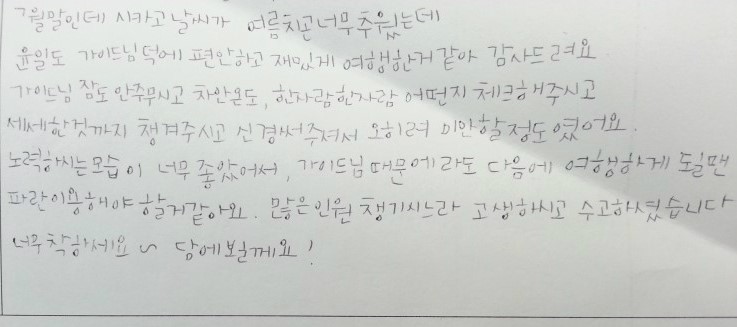 7월말인데 시카고 날씨가 여름치곤 너무 추웠는데
윤일도 가이드님 덕에 편안하고 재밌게 여행한거 같아 감사드려요
가이드님 잠도 안주무시고 차안온도, 한사람한사람 어떤지 체크해주시고
세세한것까지 챙겨주시고 신경써주셔서 오히려 미안할 정도였어요.
노력하시는모습이 너무 좋았어서, 가이드님 때문에라도 다음에 여행하게 될땐
파란이용해야 할거같아요. 많은인원 챙기시느라 고생하시고 수고하셨습니다
너무착하세요~ 담에볼께요!